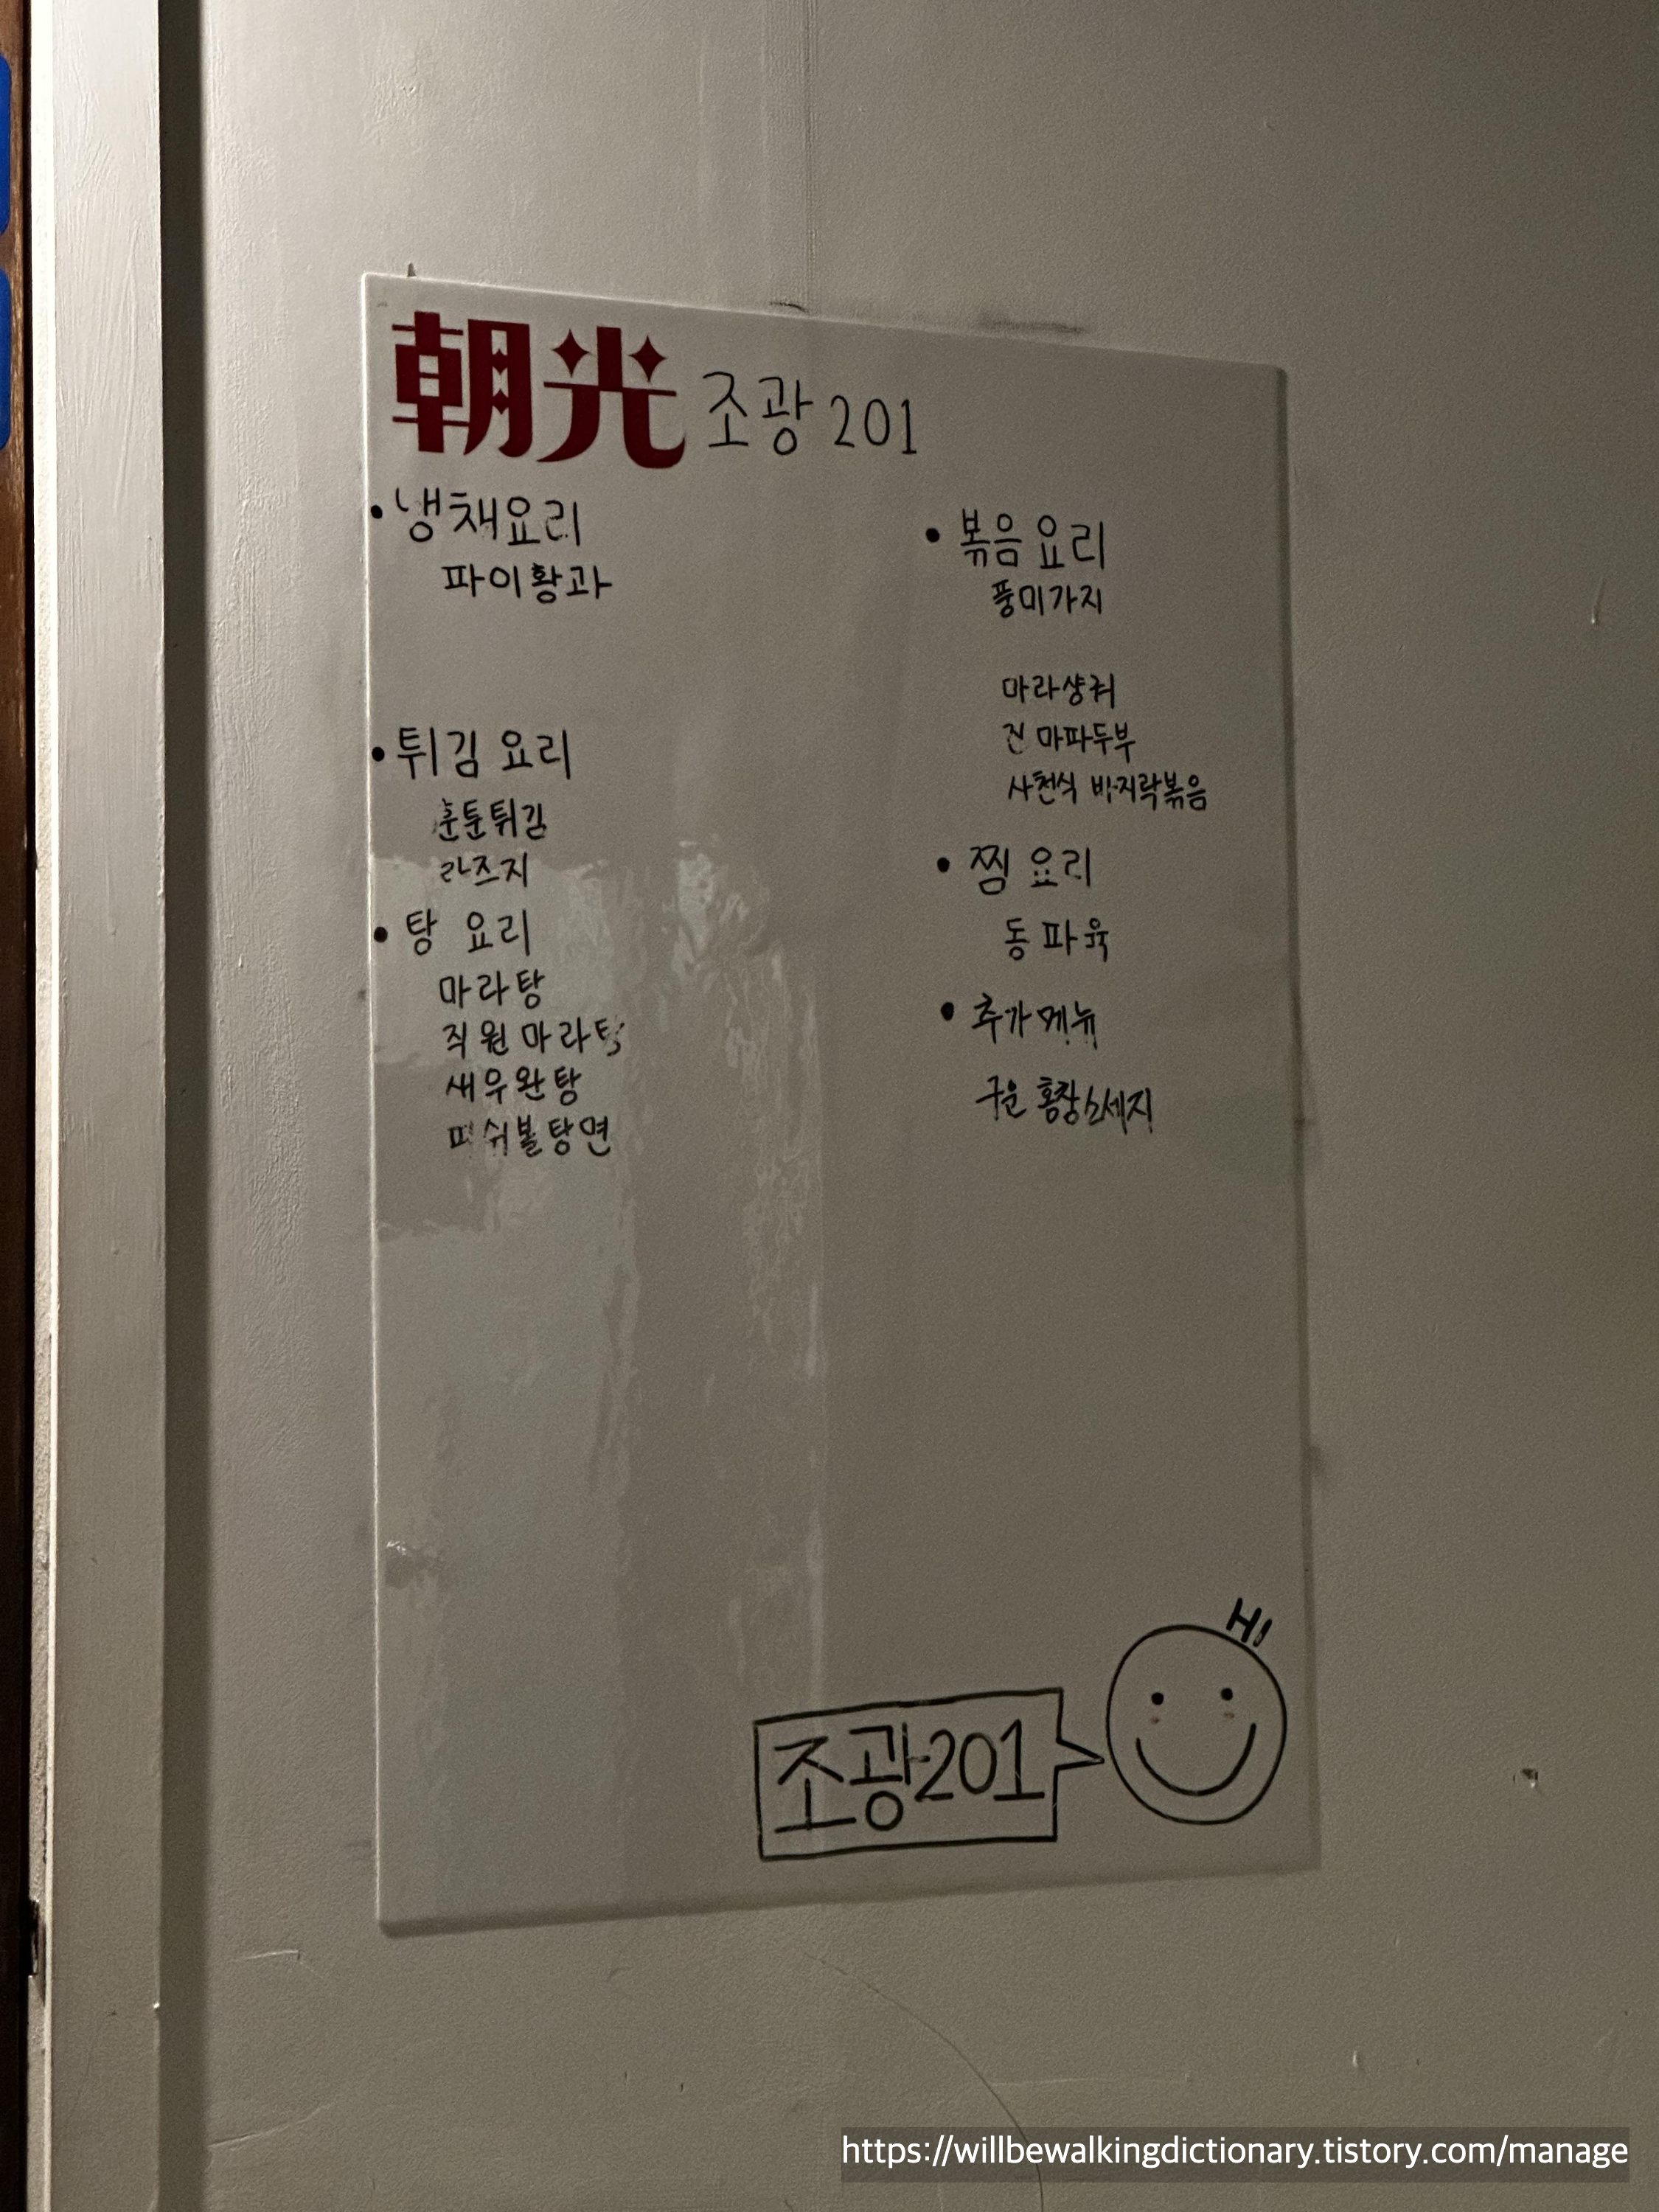 朝光 조광 201
• 냉채요리
파이황과
• 튀김 요리
훈툰튀김
라즈지
• 탕 요리
마라탕
직원 마라탕
새우완탕
피쉬볼탕면
• 볶음요리
풍미가지
마라샹궈
진 마파두부
사천식 바지락볶음
• 찜 요리
동파육
• 추가메뉴
구운 홍창소세지
HI
조광201
https://willbewalkingdictionary.tistory.com/manage